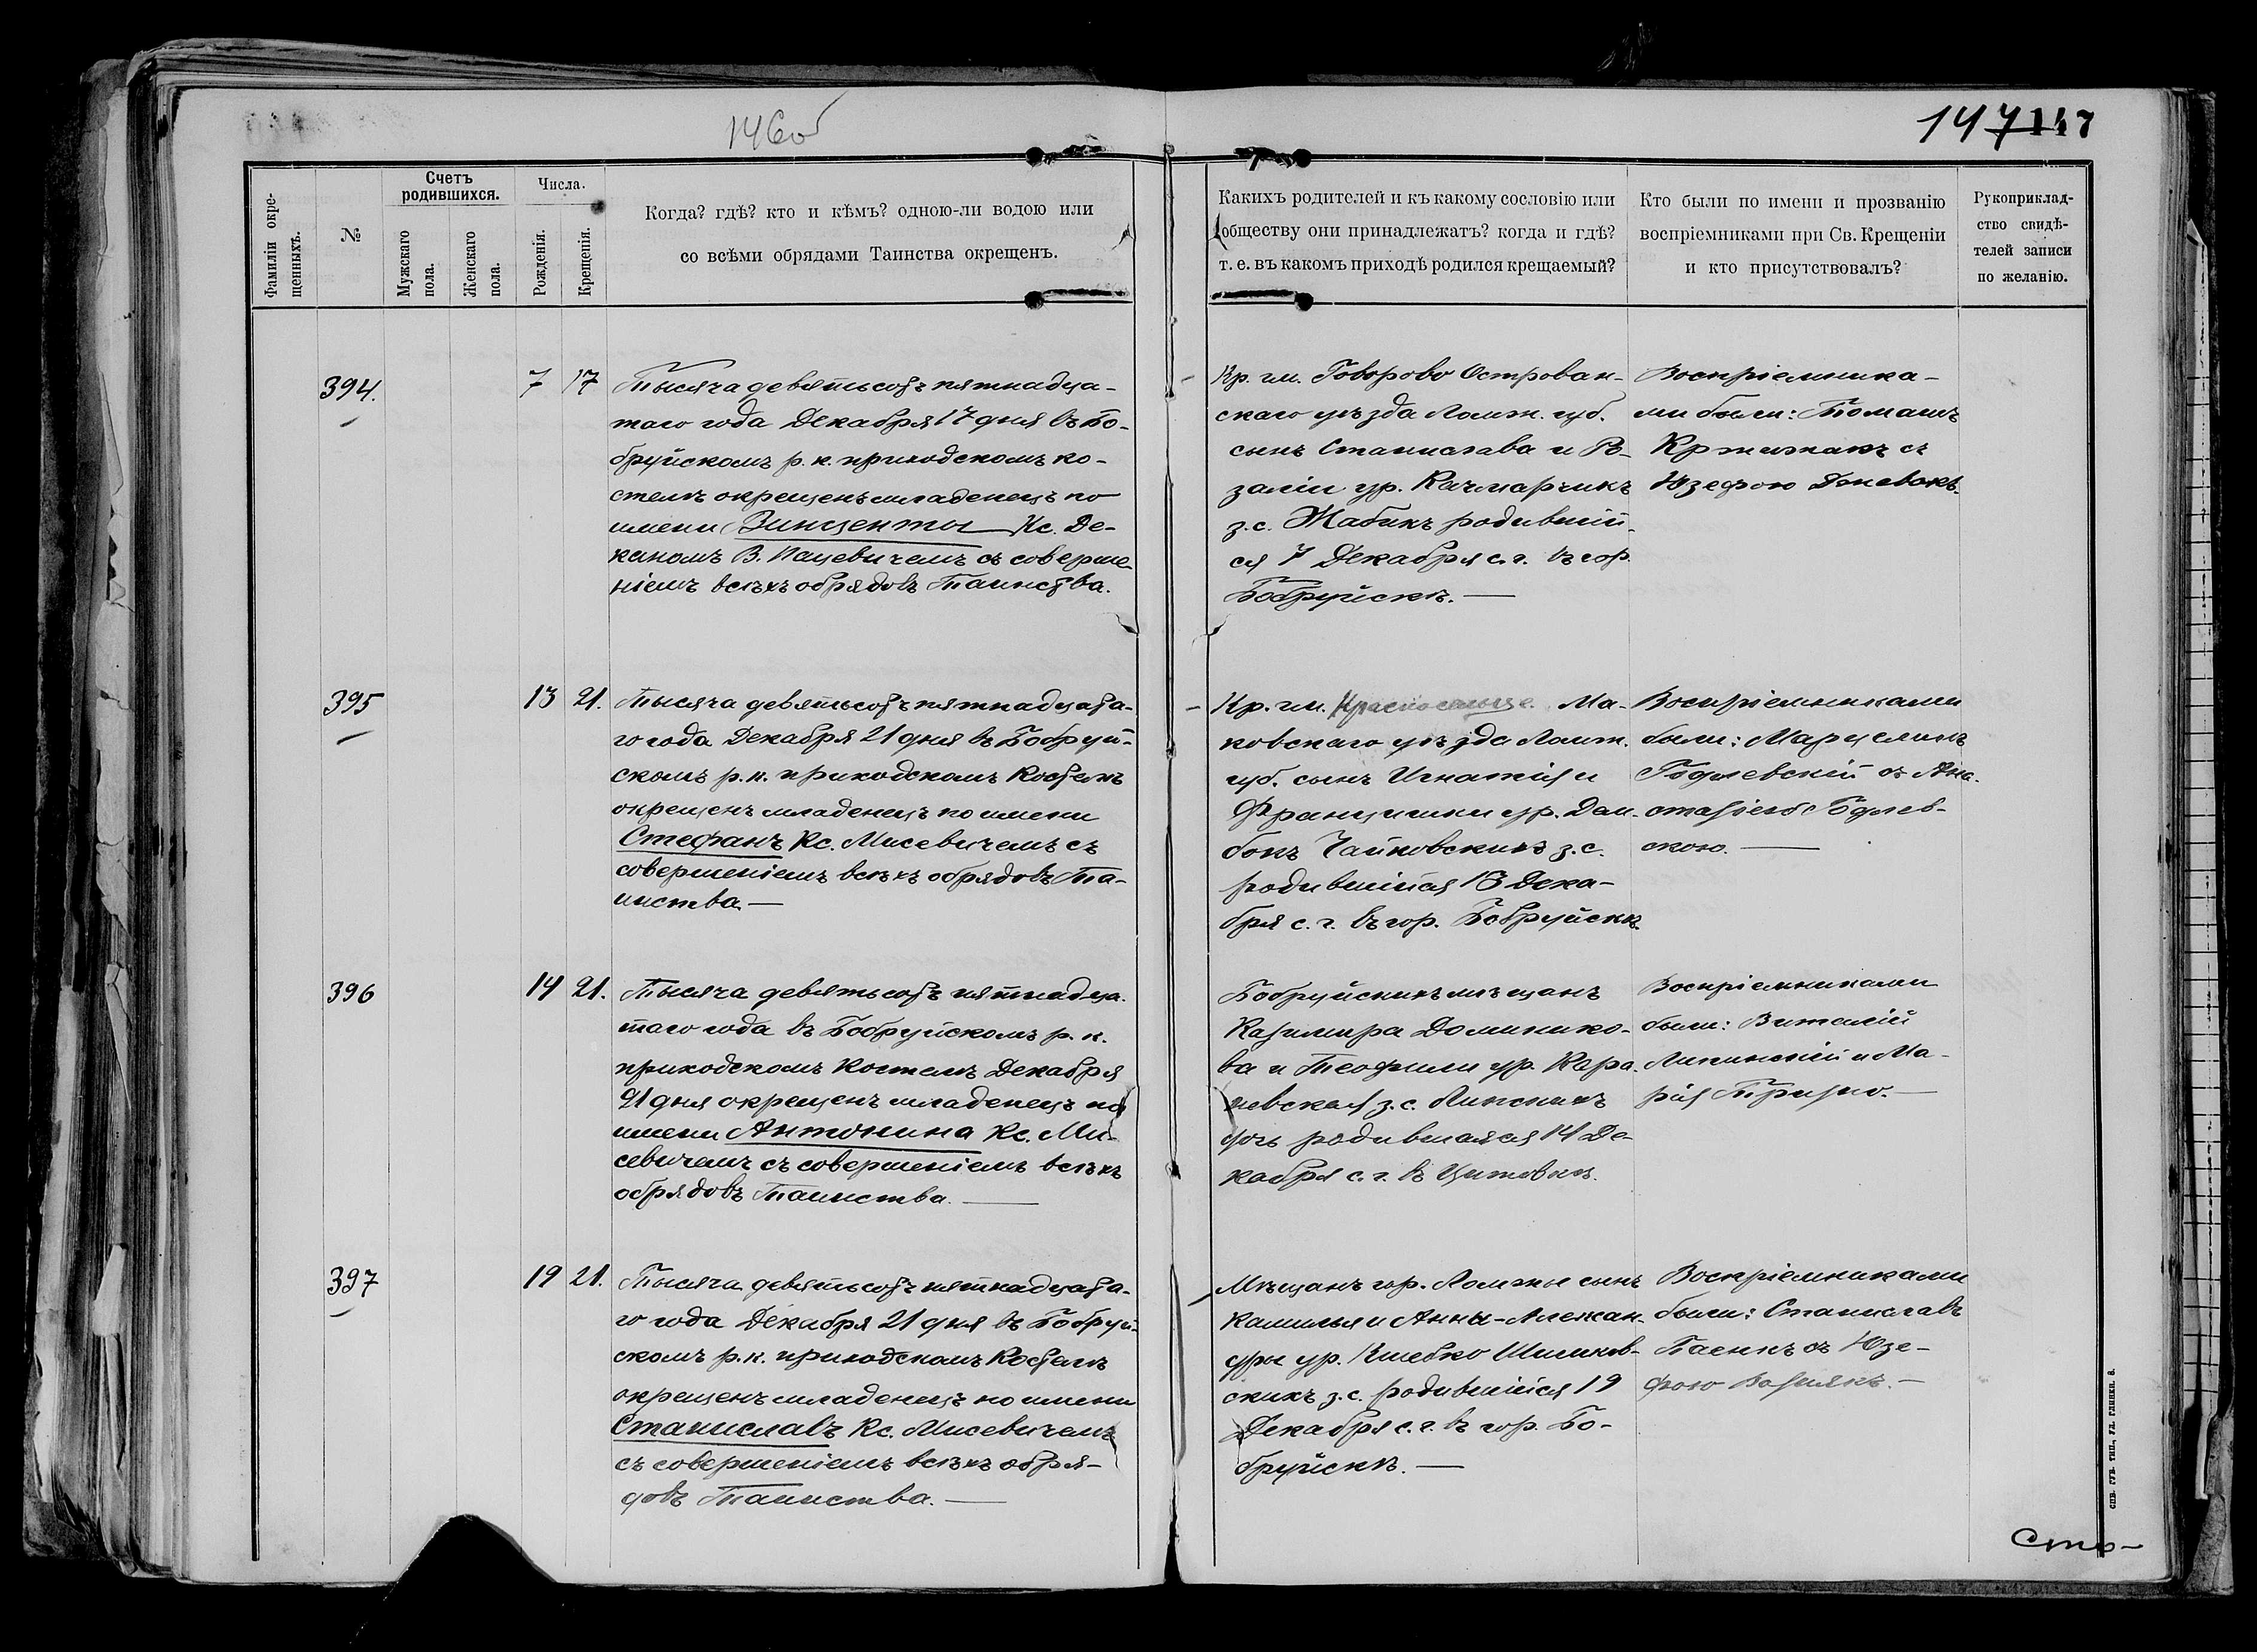 146об
147 147
Фамиліи окре-
щенныхъ.
№
Счетъ
родившихся.
Мужскаго
пола.
Женскаго
пола.
Числа.
Рожденія.
Крещенія.
Когда? гдѣ? кто и кѣмъ? одною-ли водою или
со всѣми обрядами Таинства окрещенъ.
Какихъ родителей и къ какому сословію или
обществу они принадлежатъ? когда и гдѣ?
т. е. въ какомъ приходѣ родился крещаемый?
Кто были по имени и прозванію
воспріемниками при Св. Крещеніи
и кто присутствовалъ?
Рукоприклад-
ство свидѣ-
телей записи
по желанію.
394.
7 17
Тысяча девятьсотъ пятнадца-
таго года Декабря 17 дня въ Бо-
бруйскомъ р. к. приходскомъ ко-
стелѣ окрещенъ младенецъ по
имени Винценты Кс. Де-
каномъ В. Пацевичемъ съ соверше
ніемъ всѣхъ обрядовъ Таинства.
Кр. гм. Говорово Острован-
скаго уѣзда Ломж. губ.
сынъ Станислава и Ро-
заліи ур. Качмарчикъ
з. с. Жабикъ родившій-
ся 7 Декабря с. г. въ гор.
Бобруйскѣ. —
Воспріемника-
ми были: Томашъ
Кржижакъ съ
Юзефою
395
13 21.
Тысяча девятьсотъ пятнадцата-
го года Декабря 21 дня въ Бобруй-
скомъ р. к. приходскомъ Костелѣ
окрещенъ младенецъ по имени
Стефанъ Кс. Мисевичемъ съ
совершеніемъ всѣхъ обрядовъ Та-
инства. —
Кр. гм. Красносельце Ма-
ковскаго уѣзда Ломж.
губ. сынъ Игнатія и
Францишки ур. Дем-
бокъ Чайковскихъ з. с.
родившійся 13 Дека-
бря с. г. въ гор. Бобруйскѣ.
Воспріемниками
были: Марцелинъ
Годлевскій съ Ана-
стасіею Годлев-
скою. —
396
14 21.
Тысяча девятьсотъ пятнадца-
таго года въ Бобруйскомъ р. к.
приходскомъ Костелѣ Декабря
21 дня окрещенъ младенецъ по
имени Антонина Кс. Ми-
севичемъ съ совершеніемъ всѣхъ
обрядовъ Таинства. —
Бобруйскихъ мѣщанъ
Казимира Доминико-
ва и Теофили ур. Кара-
з. с. Липскихъ
дочь родившаяся 14 Де-
кабря с. г. въ
Воспріемниками
были: Виталій
Липинскій и Ма-
рія Тризно. —
397
19 21.
Тысяча девятьсотъ пятнадцата-
го года Декабря 21 дня въ Бобруй-
скомъ р. к. приходскомъ Костелѣ
окрещенъ младенецъ по имени
Станиславъ Кс. Мисевичемъ
съ совершеніемъ всѣхъ обря-
довъ Таинства. —
Мѣщанъ гор. Ломжи сынъ
Камилья и Анны-Алексан-
дры ур.
скихъ з. с. родившійся 19
Декабря с. г. въ гор. Бо-
бруйскѣ. —
Воспріемниками
были: Станиславъ
съ Юзе-
фою
Сто-
СПБ. ГУБ. ТИП., УЛ. ГЛИНКИ. 8.